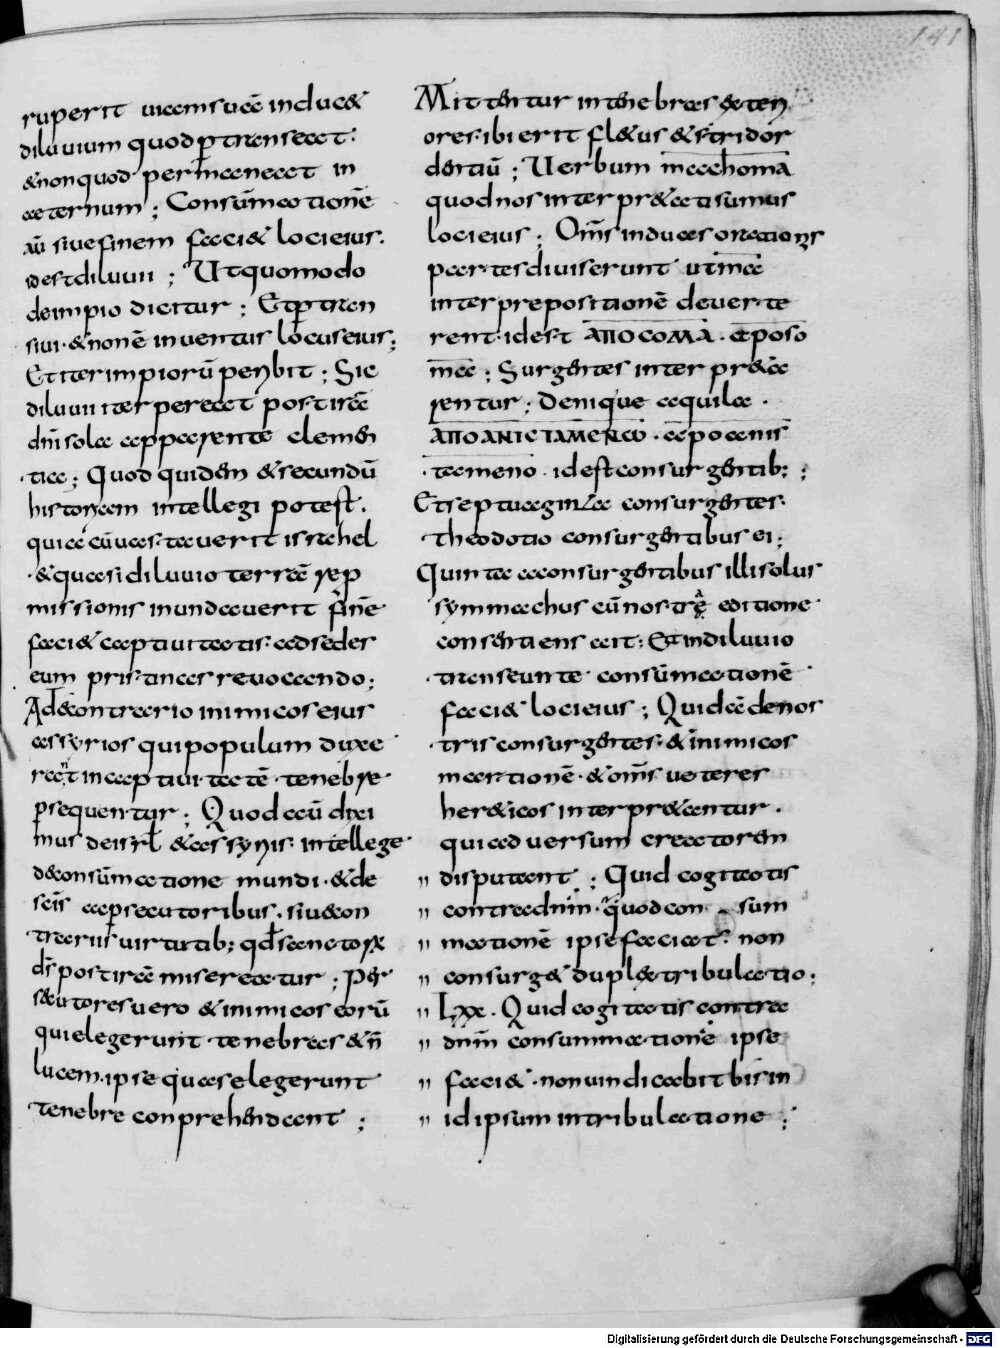 141
ruperit uiam suā induc&
diluuium quod ꝑtranseat:
& non quod permaneat in
aeternum ; Consūmationē
aū siue finem faci& loci eius.
id est diluuii ; Ut quomodo
de impio dicitur ; Et ꝑtran
siui · & non ē inuentus locus eius ;
Et iter impiorū peribit ; Sic
diluuii iter pereat post irā
dn̄i sola apparente clemen
tia ; Quod quidem & secundū
historiam intellegi potest .
quia cū uastauerit israhel
· & quasi diluuio terrā rep
missionis inundauerit finē
faci& captiuitatis · ad sedes
eum pristinas reuocando ;
Ad& contrario inimicos eius
assyrios qui populum duxe
rant in captiuitatē · tenebre
ꝑsequentur ; Quod aū dixi
mus de isrł & assyriis · intellege
d& consūmatione mundi · & de
sc̄is ac ꝑsecutoribus . siu& con
trariis uirtutib; qd̄ sanctorū
ds̄ post irā misereatur ; Per
secutores uero & inimicos eorū
qui elegerunt · tenebras & n̄
lucem . ipse quas elegerunt
tenebre conprehendant ;
Mittentur in tenebras exteri
ores · ibi erit fl&us & stridor
dentiū ; Uerbum macchoma
quod nos interpr&ati sumus
loci eius ; Om̄s in duas orationis
partes diuiserunt ut mā
in terprepositionē deuerte
rent · id est ΑΠΟ COMA · ap̄oso
mā ; Surgentes interpr&a
rentur ; Denique aquila ·
ΑΠΟ ΑΝΙCΤΑΜΕΝCO · ap̄o anis
· tameno · id est consurgentib; ;
Et septuaginta consurgentes ·
theodotio consurgentibus ei ;
Quinta a consurgentibus illi solus
symmachus cū nostrę editione
consentiens ait : Et in diluuio
· transeunte · consūmationē
faci& loci eius ; Quidā de nos
tris consurgentes · & inimicos
martionē · & om̄s ueteres
her&icos interpr&antur .
qui aduersum creatorem
" disputant ; Quid cogitatis
" contra dn̄m · quod con sum
" mationē ipse faciat · non
" consurg& dupl& tribulatio ;
" Lxx . Quid cogitatis contra
" dn̄m consummationē ipse
" faci& · non uindicabit bis in
" id ipsum in tribulatione ;
Digitalisierung gefördert durch die Deutsche Forschungsgemeinschaft - DFG